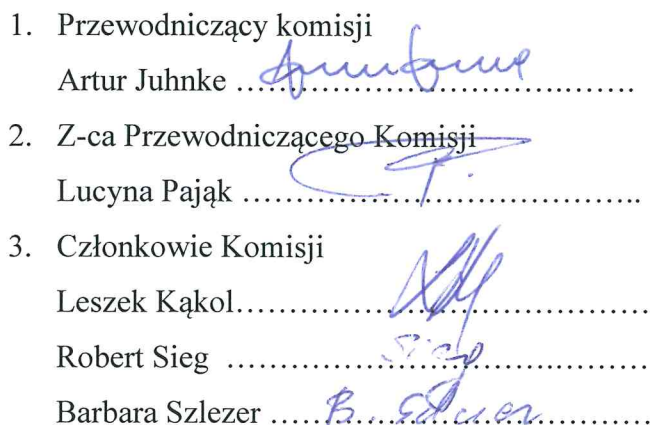 1. Przewodniczący komisji
Artur Juhnke ……………………………….
2. Z-ca Przewodniczącego Komisji
Lucyna Pająk ………………………………..
3. Członkowie Komisji
Leszek Kąkol…………………………………
Robert Sieg …………………………………
Sieg
Barbara Szlezer ………………………………